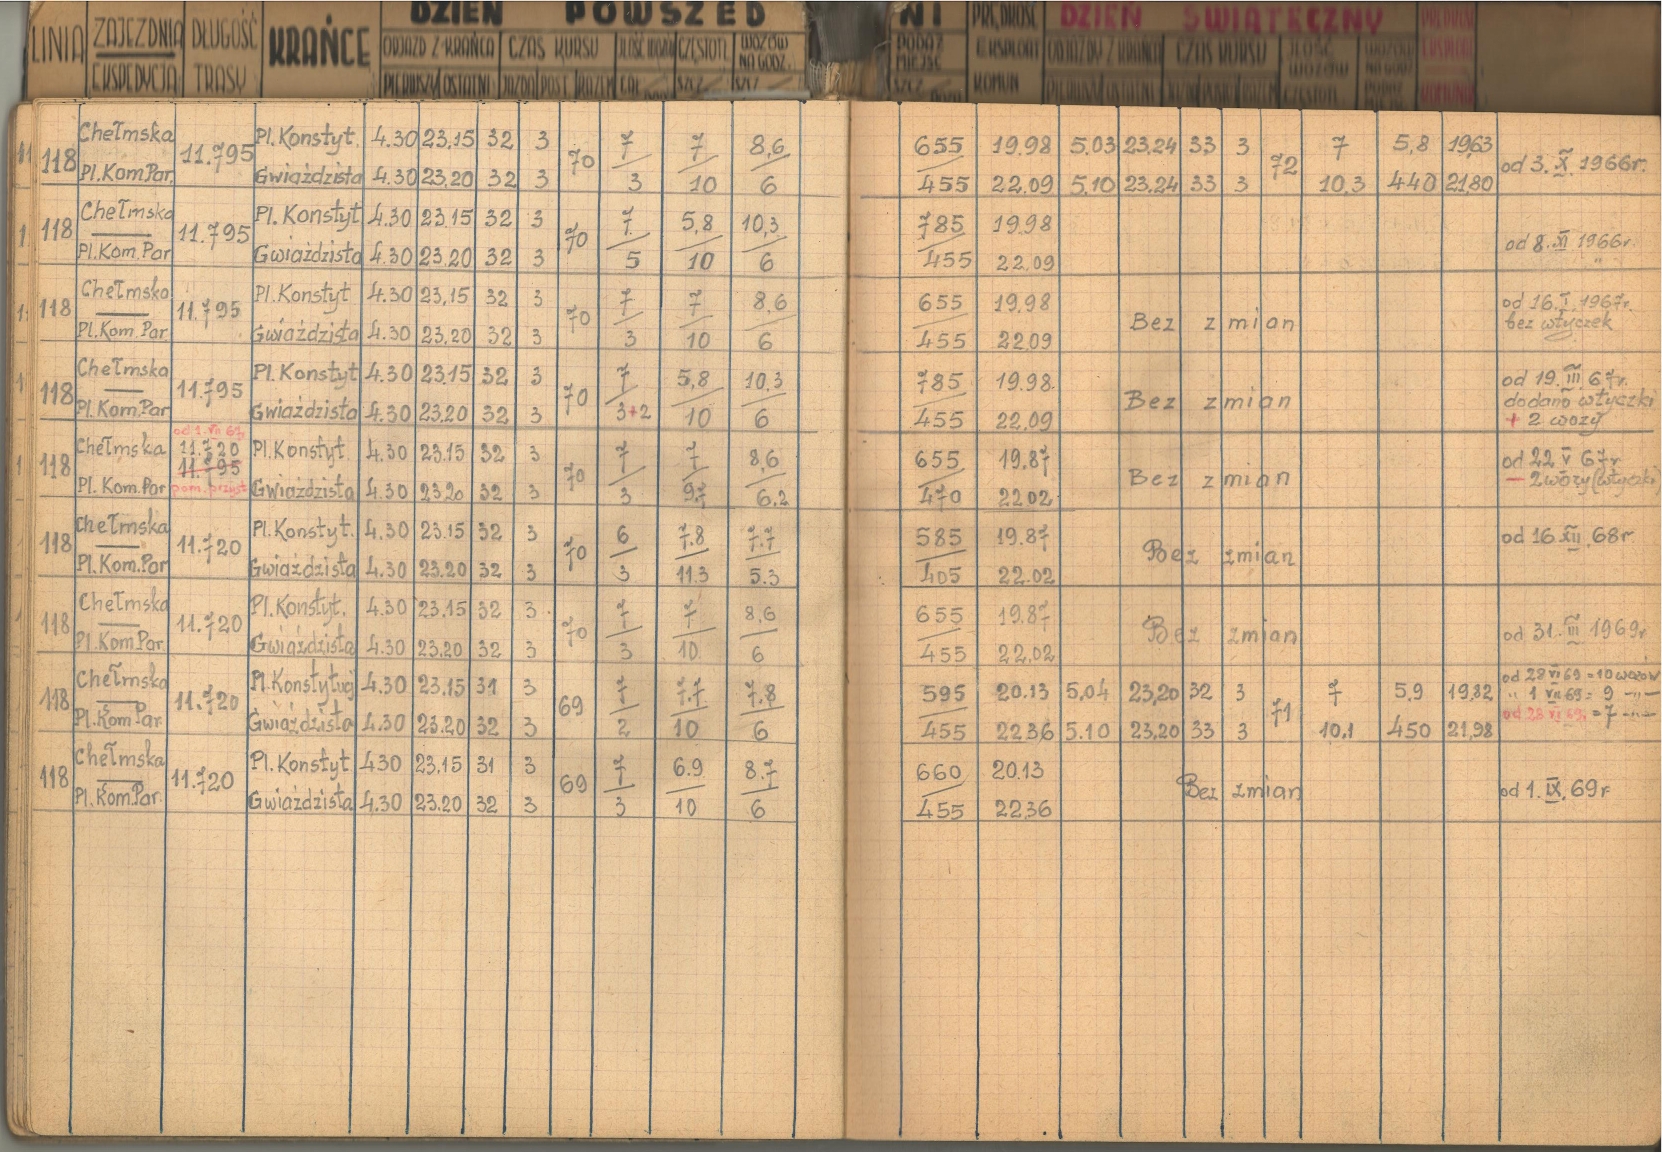 LINIA ZAJEZDNIA DŁUGOŚĆ KRAŃCE DZIEŃ POWSZED NI PRĘDKOŚĆ DZIEŃ ŚWIĄTECZNY
EKSPEDYCJA TRASY ODJAZD Z KRAŃCA CZAS KURSU CZĘSTOTL WOZÓW NA GODZ. PODAŻ MIEJSC EKSPLOAT ODJAZDY Z KRAŃCA CZAS KURSU ILOŚĆ WOZÓW
PIERWSZY OSTATNI JAZDA POST. RAZEM SZCZ KOMUN PIERWSZY OSTATNI CZĘSTOTL
118 Chełmska 11.795 Pl. Konstyt. 4.30 23,15 32 3 70 7 7 8,6 655 19.98 5.03 23,24 33 3 72 7 5,8 19,63 od 3. X. 1966r.
Pl. Kom.Par. Gwiaździsta 4.30 23,20 32 3 3 10 6 455 22,09 5,10 23,24 33 3 10,3 440 21,80
118 Chełmska 11.795 Pl. Konstyt 4.30 23.15 32 3 70 7 5,8 10,3 785 19.98
Pl. Kom. Par Gwiaździsta 4.30 23.20 32 3 5 10 6 455 22.09 od 8. XI 1966r.
118 Chełmska 11.795 Pl. Konstyt 4.30 23,15 32 3 70 7 7 8,6 655 19.98 Bez zmian od 16. I. 1967r.
bez wtyczek
Pl. Kom. Par Gwiaździsta 4.30 23,20 32 3 3 10 6 455 22.09
118 Chełmska 11.795 Pl. Konstyt 4.30 23.15 32 3 70 7 5,8 10,3 785 19.98 Bez zmian od 19. III. 67r.
dodano wtyczki
Pl. Kom. Par Gwiaździsta 4.30 23.20 32 3 3+2 10 6 455 22.09 + 2 wozy
od 1. VII 67r
118 Chełmska 11.720 Pl. Konstyt. 4.30 23.15 32 3 70 7 7 8,6 655 19.87 Bez zmian od 22 V 67r
11.795
Pl. Kom. Par pom. przyst. Gwiaździsta 4.30 23.20 32 3 3 9,7 6.2 470 22 02 – 2 wozy (wtyczki)
118 Chełmska 11.720 Pl. Konstyt. 4.30 23.15 32 3 70 6 7.8 7.7 585 19.87 Bez zmian od 16 XII. 68r.
Pl. Kom. Par Gwiaździsta 4.30 23.20 32 3 3 11.3 5.3 405 22.02
118 Chełmska 11.720 Pl. Konstyt. 4.30 23.15 32 3 70 7 7 8,6 655 19.87 Bez zmian
Pl. Kom Par. Gwiaździsta 4.30 23.20 32 3 3 10. 6 455 22,02 od 31. III 1969r
118 Chełmska 11.720 Pl. Konstytucji 4.30 23,15 31 3 69 7 7.7 7.8 595 20.13 5,04 23,20 32 3 71 7 5.9 19,82 od 28 VI 69 = 10 wozów
" 1 VII 69 = 9 –"–
od 28 VI 69r = 7 –"–
Pl. Kom Par. Gwiaździsta 4.30 23.20 32 3 2 10 6 455 22 36 5.10 23,20 33 3 10,1 450 21,98
118 Chełmska 11.720 Pl. Konstyt. 4 30 23.15 31 3 69 7 6.9 8.7 660 20.13 Bez zmian od 1. IX. 69r
Pl. Kom Par. Gwiaździsta 4.30 23.20 32 3 3 10 6 455 22,36